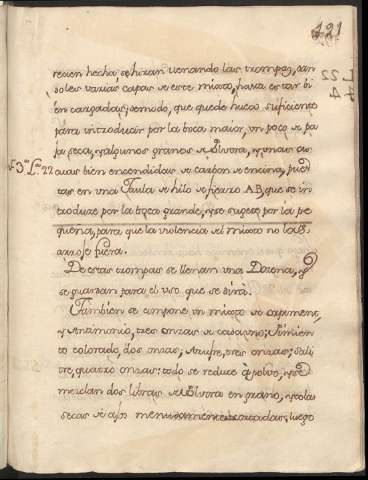 121
recien hecha, se hiràn llenando las trompas, dan
doles varias capas de este mixto, hasta estar bi
én cargadas; demodo, que quede hueco suficiente
para introducir por la boca maior, un poco de pa
pa seca, y algunos granos de Polvora, y unas as
f.3.ª L.ª 22
cuas bien encendidas de carbon de encina, pues
tas en una Jaula de hilo de fierro A.B, que se in
troduze por la boca grande, y se sugeta por la pe
queña, para que la violencia del mixto no la
arroje fuera.
De estas trompas se llenan una Dozena, y
se guardan para el uso que se dirà.
Tambien se compone un mixto de orpiment,
y Antimonio, tres onzas de cada uno; Pimien
to colorado, dos onzas; Azufre, tres onzas; Sali
tre, quatro onzas: todo se reduce à polvo, y se
mezclan dos libras de Polvora en grano, y
secas de ajos menudamente luego
L 22
4
4